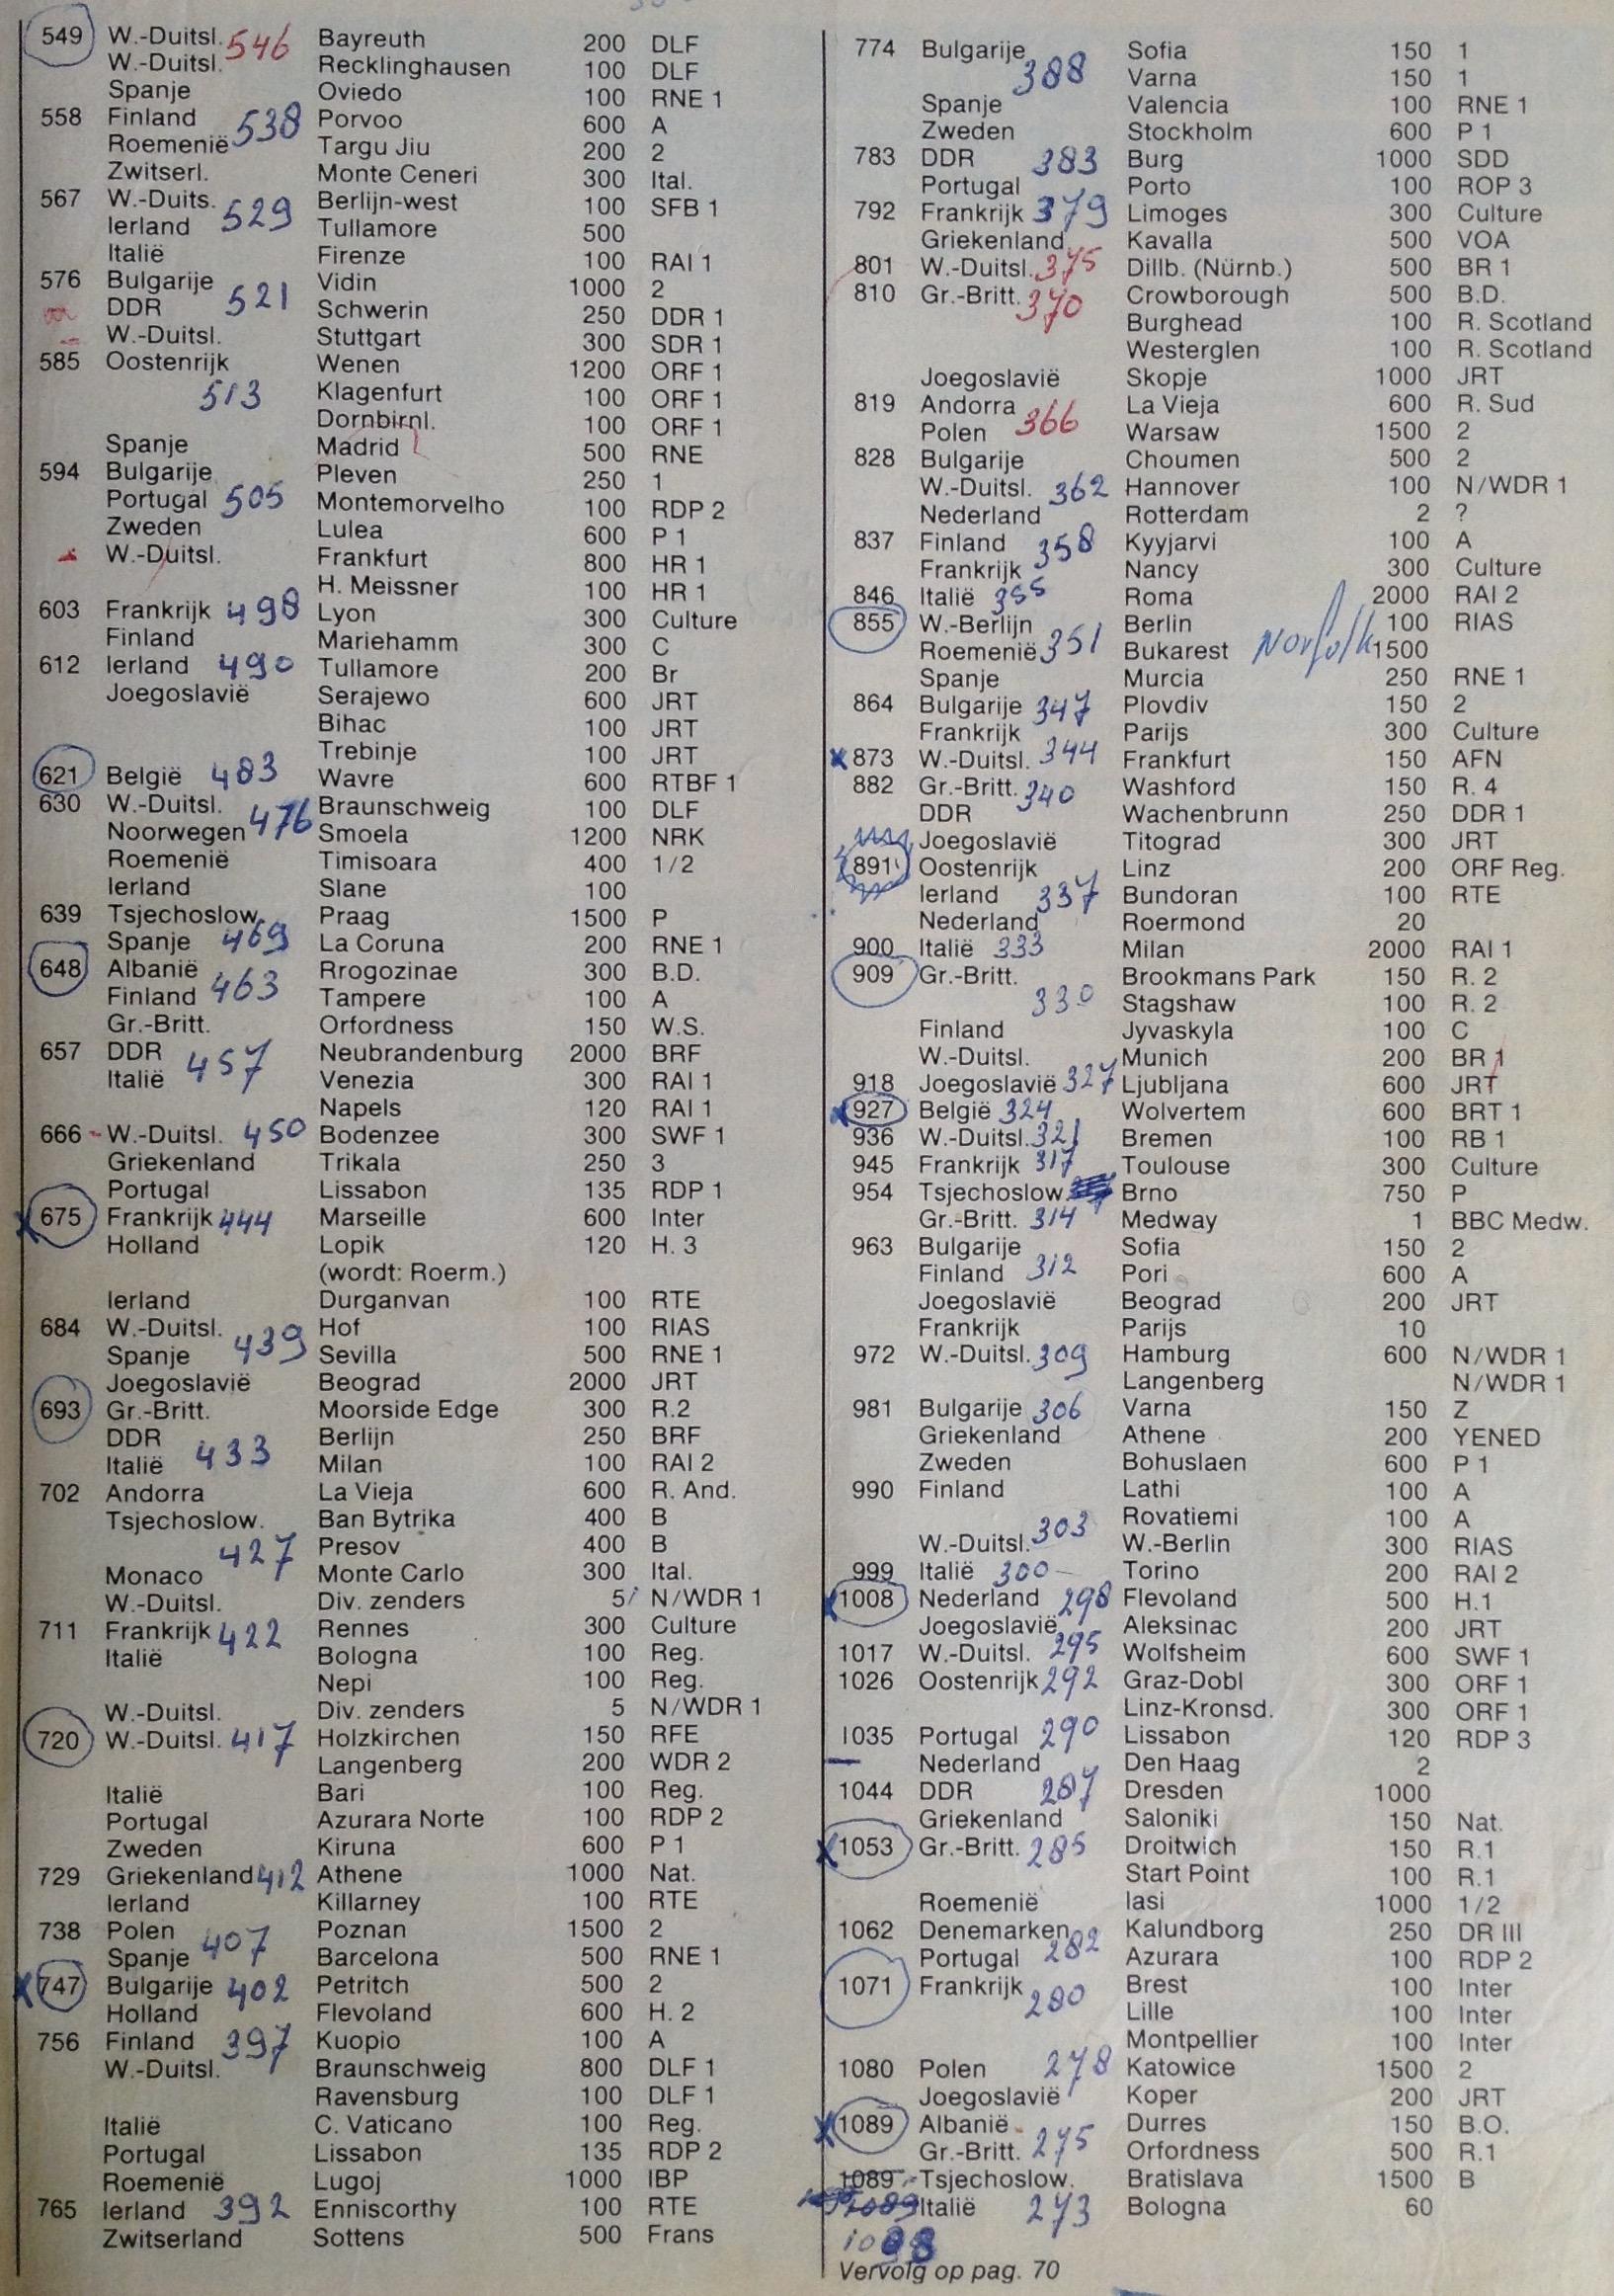 549 W.-Duitsl. 546 Bayreuth 200 DLF
W.-Duitsl. Recklinghausen 100 DLF
Spanje Oviedo 100 RNE 1
558 Finland 538 Porvoo 600 A
Roemenië Targu Jiu 200 2
Zwitserl. Monte Ceneri 300 Ital.
567 W.-Duits. 529 Berlijn-west 100 SFB 1
Ierland Tullamore 500
Italië Firenze 100 RAI 1
576 Bulgarije 521 Vidin 1000 2
DDR Schwerin 250 DDR 1
W.-Duitsl. Stuttgart 300 SDR 1
585 Oostenrijk Wenen 1200 ORF 1
513 Klagenfurt 100 ORF 1
Dornbirnl. 100 ORF 1
Spanje Madrid 500 RNE
594 Bulgarije Pleven 250 1
Portugal 505 Montemorvelho 100 RDP 2
Zweden Lulea 600 P 1
W.-Duitsl. Frankfurt 800 HR 1
H. Meissner 100 HR 1
603 Frankrijk 498 Lyon 300 Culture
Finland Mariehamm 300 C
612 Ierland 490 Tullamore 200 Br
Joegoslavië Serajewo 600 JRT
Bihac 100 JRT
Trebinje 100 JRT
621 België 483 Wavre 600 RTBF 1
630 W.-Duitsl. 476 Braunschweig 100 DLF
Noorwegen Smoela 1200 NRK
Roemenië Timisoara 400 1/2
Ierland Slane 100
639 Tsjechoslow. Praag 1500 P
Spanje 469 La Coruna 200 RNE 1
648 Albanië Rrogozinae 300 B.D.
Finland 463 Tampere 100 A
Gr.-Britt. Orfordness 150 W.S.
657 DDR 457 Neubrandenburg 2000 BRF
Italië Venezia 300 RAI 1
Napels 120 RAI 1
666 W.-Duitsl. 450 Bodenzee 300 SWF 1
Griekenland Trikala 250 3
Portugal Lissabon 135 RDP 1
x 675 Frankrijk 444 Marseille 600 Inter
Holland Lopik 120 H. 3
(wordt: Roerm.)
Ierland Durganvan 100 RTE
684 W.-Duitsl. 439 Hof 100 RIAS
Spanje Sevilla 500 RNE 1
Joegoslavië Beograd 2000 JRT
693 Gr.-Britt. Moorside Edge 300 R.2
DDR 433 Berlijn 250 BRF
Italië Milan 100 RAI 2
702 Andorra La Vieja 600 R. And.
Tsjechoslow. Ban Bytrika 400 B
427 Presov 400 B
Monaco Monte Carlo 300 Ital.
W.-Duitsl. Div. zenders 5 N/WDR 1
711 Frankrijk 422 Rennes 300 Culture
Italië Bologna 100 Reg.
Nepi 100 Reg.
W.-Duitsl. Div. zenders 5 N/WDR 1
720 W.-Duitsl. 417 Holzkirchen 150 RFE
Langenberg 200 WDR 2
Italië Bari 100 Reg.
Portugal Azurara Norte 100 RDP 2
Zweden Kiruna 600 P 1
729 Griekenland 412 Athene 1000 Nat.
Ierland Killarney 100 RTE
738 Polen 407 Poznan 1500 2
Spanje Barcelona 500 RNE 1
x 747 Bulgarije 402 Petritch 500 2
Holland Flevoland 600 H. 2
756 Finland 397 Kuopio 100 A
W.-Duitsl. Braunschweig 800 DLF 1
Ravensburg 100 DLF 1
Italië C. Vaticano 100 Reg.
Portugal Lissabon 135 RDP 2
Roemenië Lugoj 1000 IBP
765 Ierland 392 Enniscorthy 100 RTE
Zwitserland Sottens 500 Frans
774 Bulgarije Sofia 150 1
388 Varna 150 1
Spanje Valencia 100 RNE 1
Zweden Stockholm 600 P 1
783 DDR 383 Burg 1000 SDD
Portugal Porto 100 ROP 3
792 Frankrijk 379 Limoges 300 Culture
Griekenland Kavalla 500 VOA
801 W.-Duitsl. 375 Dillb. (Nürnb.) 500 BR 1
810 Gr.-Britt. 370 Crowborough 500 B.D.
Burghead 100 R. Scotland
Westerglen 100 R. Scotland
Joegoslavië Skopje 1000 JRT
819 Andorra 366 La Vieja 600 R. Sud
Polen Warsaw 1500 2
828 Bulgarije Choumen 500 2
W.-Duitsl. 362 Hannover 100 N/WDR 1
Nederland Rotterdam 2 ?
837 Finland 358 Kyyjarvi 100 A
Frankrijk Nancy 300 Culture
846 Italië 355 Roma 2000 RAI 2
855 W.-Berlijn Berlin 100 RIAS
Roemenië 351 Bukarest Norfolk 1500
Spanje Murcia 250 RNE 1
864 Bulgarije 347 Plovdiv 150 2
Frankrijk Parijs 300 Culture
x 873 W.-Duitsl. 344 Frankfurt 150 AFN
882 Gr.-Britt. 340 Washford 150 R. 4
DDR Wachenbrunn 250 DDR 1
Joegoslavië Titograd 300 JRT
891 Oostenrijk Linz 200 ORF Reg.
Ierland 337 Bundoran 100 RTE
Nederland Roermond 20
900 Italië 333 Milan 2000 RAI 1
909 Gr.-Britt. Brookmans Park 150 R. 2
330 Stagshaw 100 R. 2
Finland Jyvaskyla 100 C
W.-Duitsl. Munich 200 BR 1
918 Joegoslavië 327 Ljubljana 600 JRT
x 927 België 324 Wolvertem 600 BRT 1
936 W.-Duitsl. 321 Bremen 100 RB 1
945 Frankrijk 317 Toulouse 300 Culture
954 Tsjechoslow. Brno 750 P
Gr.-Britt. 314 Medway 1 BBC Medw.
963 Bulgarije Sofia 150 2
Finland 312 Pori 600 A
Joegoslavië Beograd 200 JRT
Frankrijk Parijs 10
972 W.-Duitsl. 309 Hamburg 600 N/WDR 1
Langenberg N/WDR 1
981 Bulgarije 306 Varna 150 Z
Griekenland Athene 200 YENED
Zweden Bohuslaen 600 P 1
990 Finland Lathi 100 A
Rovatiemi 100 A
W.-Duitsl. 303 W.-Berlin 300 RIAS
999 Italië 300 Torino 200 RAI 2
x 1008 Nederland 298 Flevoland 500 H.1
Joegoslavië Aleksinac 200 JRT
1017 W.-Duitsl. 295 Wolfsheim 600 SWF 1
1026 Oostenrijk 292 Graz-Dobl 300 ORF 1
Linz-Kronsd. 300 ORF 1
1035 Portugal 290 Lissabon 120 RDP 3
Nederland Den Haag 2
1044 DDR 287 Dresden 1000
Griekenland Saloniki 150 Nat.
x 1053 Gr.-Britt. 285 Droitwich 150 R.1
Start Point 100 R.1
Roemenië Iasi 1000 1/2
1062 Denemarken Kalundborg 250 DR III
Portugal 282 Azurara 100 RDP 2
1071 Frankrijk 280 Brest 100 Inter
Lille 100 Inter
Montpellier 100 Inter
1080 Polen 278 Katowice 1500 2
Joegoslavië Koper 200 JRT
x 1089 Albanië Durres 150 B.O.
Gr.-Britt. 275 Orfordness 500 R.1
1089 Tsjechoslow. Bratislava 1500 B
1089 Italië 273 Bologna 60
Vervolg op pag. 70